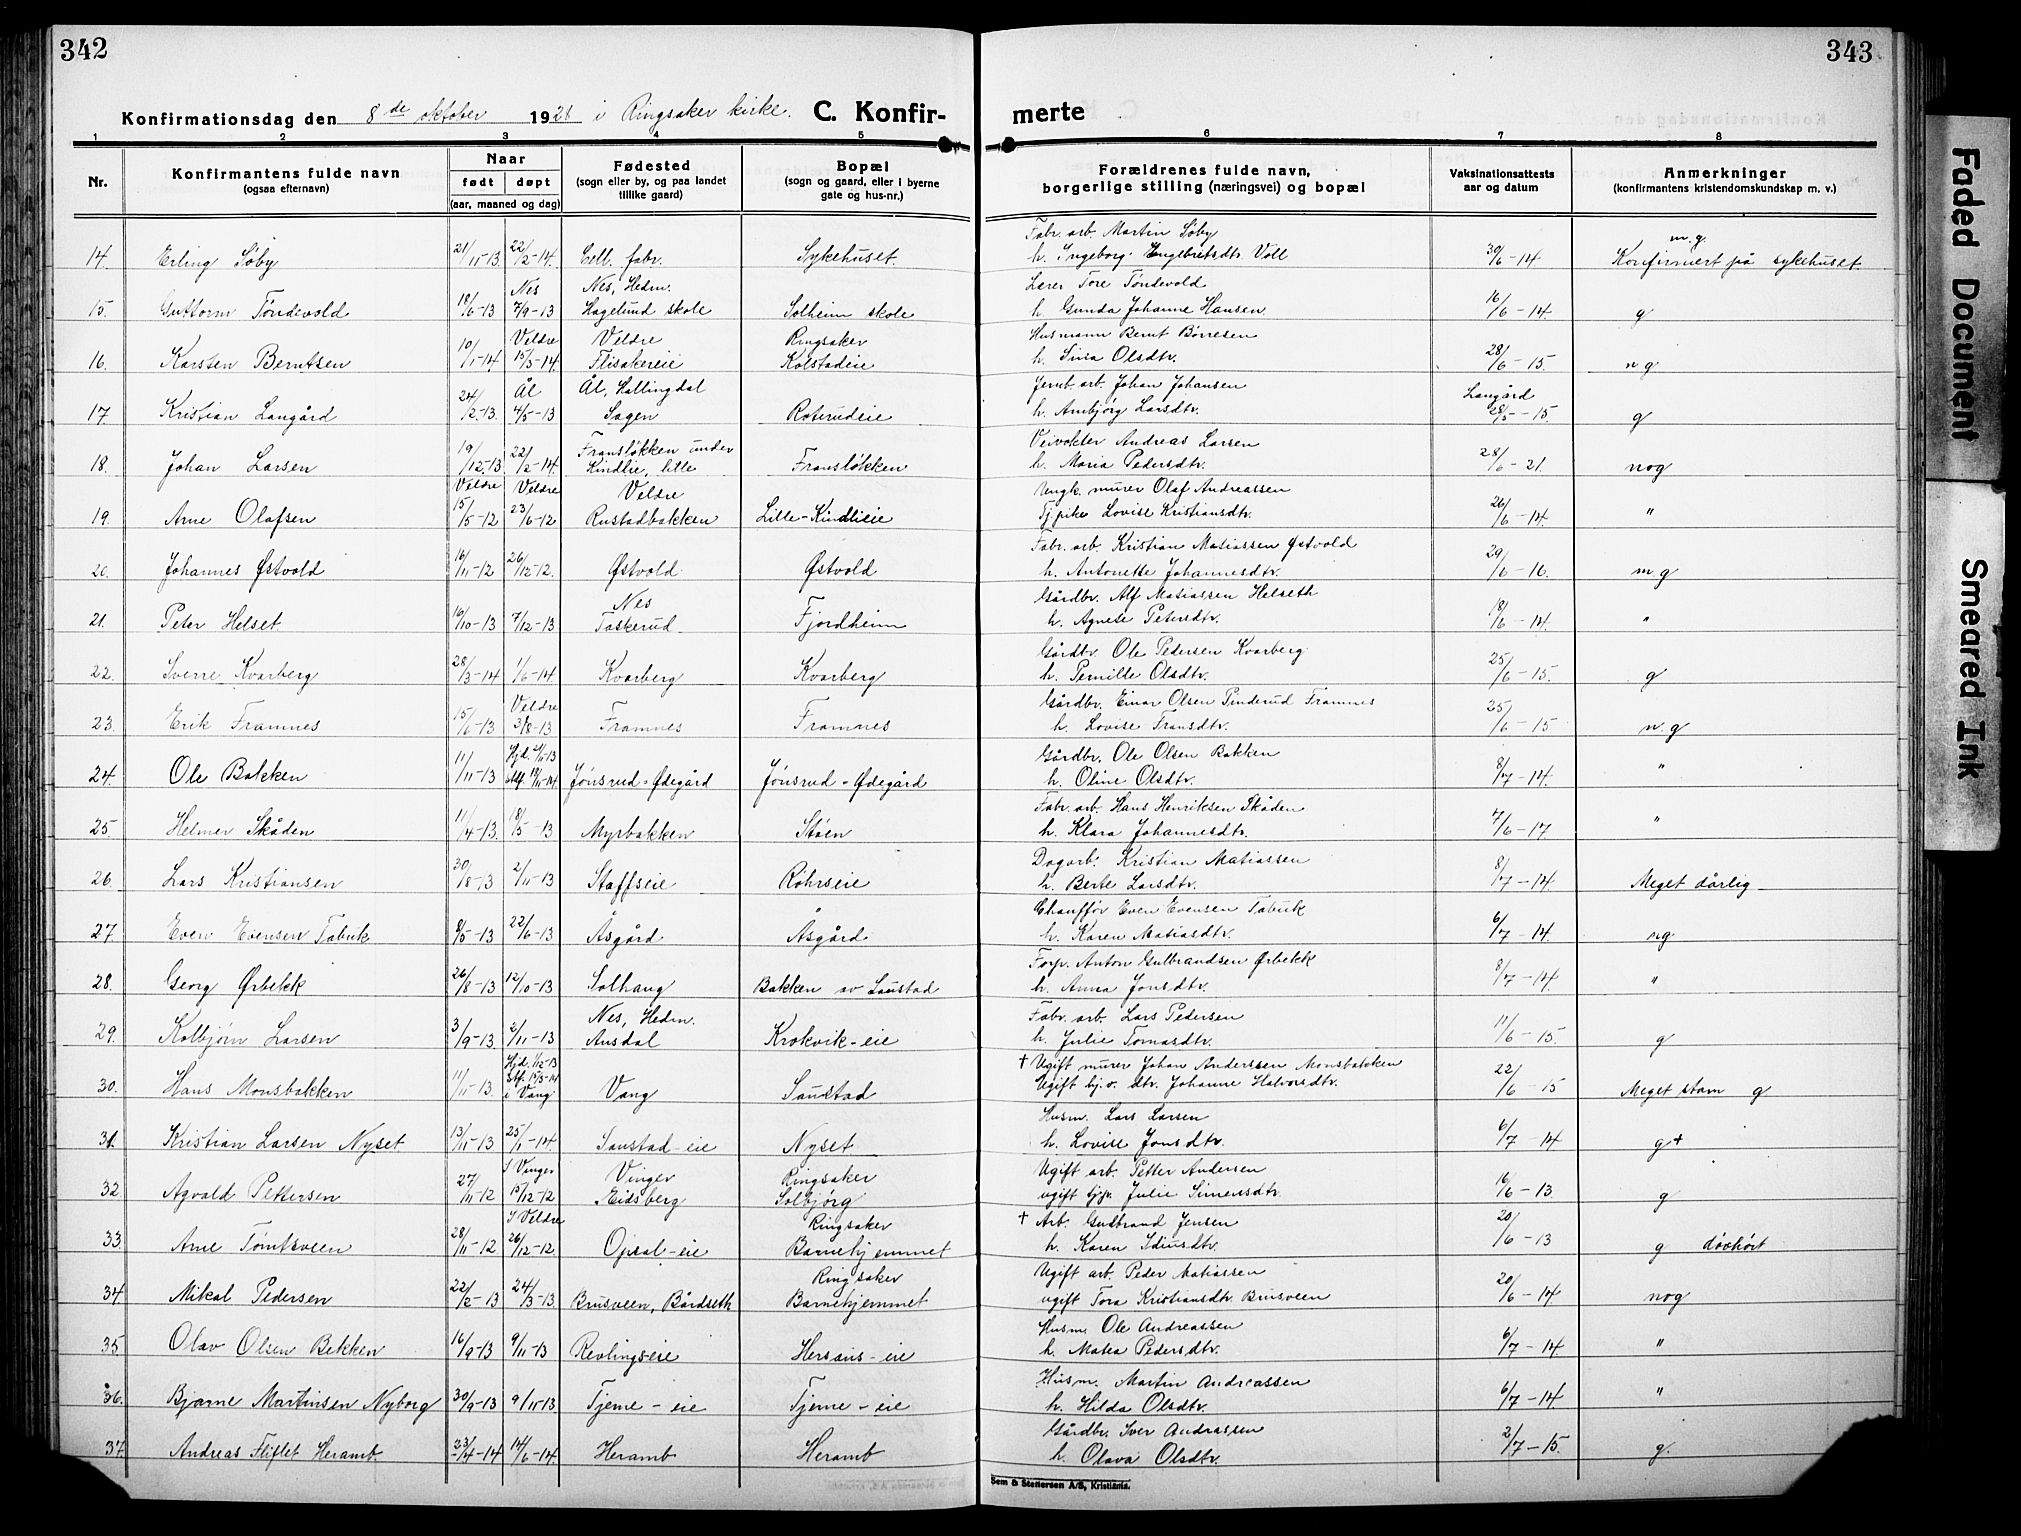 342
343
Konfirmationsdag den 8de oktober 1928 i Ringsaker kirke. C. Konfir-
merte
1 2 3 4 5 6 7 8
Nr. Konfirmantens fulde navn (ogsaa efternavn) Naar født døpt (aar, maaned og dag) Fødested (sogn eller by, og paa landet tillike gaard) Bopæl (sogn og gaard, eller i byerne gate og hus-nr.) Forældrenes fulde navn, borgerlige stilling (næringsvei) og bopæl Vaksinationsattests aar og datum Anmerkninger (konfirmantens kristendomskundskap m. v.)
Fabr. arb. Martin Søby m.g.
14. Erling Søby 21/11-13 22/2-14. Cell. fabr. Sykehuset. h. Ingeborg Engebretsdtr. Voll 30/6-14 Konfirmert på sykehuset.
Nes Nes, Hedm. Lærer Tore Tøndevold
15. Guttorm Tøndevold 18/6-13 7/9-13 Hagelund skole Solheim skole h. Gunda Johanne Hansen 16/6-14 g
Veldre Veldre Ringsaker Husmann Bernt Børresen
16. Karsten Berntsen 10/1-14 15/3-14 Flisakereie Kolstadeie h. Sina Olsdtr. 28/6-15. ng
Ål Ål, Hallingdal Jernb. arb. Johan Johansen Langård
17. Kristian Langård 24/2-13. 4/5-13 Sagen Roterudeie h. Ambjørg Larsdtr. 28/5-15. g
Fransløkken under Veivokter Andreas Larsen
18. Johan Larsen 19/12-13 22/2-14. Kindlie, lille Fransløkken h. Maria Pedersdtr. 28/6-21. nog
Veldre Veldre Veldre Ungk. murer Olaf Andreassen
19. Arne Olafsen 15/5-12 23/6-12 Rustadbakken Lille-Kindlieie Tj.pike Lovise Kristiansdtr. 26/6-14. "
Fabr. arb. Kristian Matiassen Østvold
20. Johannes Østvold 16/11-12 26/12-12. Østvold Østvold h. Antonette Johannesdtr. 29/6-16. m.g
Nes Gårdbr. Alf Matiassen Helseth
21. Peter Helset 16/10-13 7/12-13 Taskerud Fjordheim h. Agnese Petersdtr. 18/6-14. "
Gårdbr. Ole Pedersen Kvarberg
22. Sverre Kvarberg 28/3-14 1/6-14 Kvarberg Kvarberg h. Pernille Olsdtr. 25/6-15. g
Veldre Gårdbr. Einar Olsen Pinderud Framnes
23. Erik Framnes 15/6-13 3/8-13 Framnes Framnes h. Lovise Fransdtr. 25/6-15 n.g
Hjd. Gårdbr. Ole Olsen Bakken
24. Ole Bakken 11/11-13 Jønsrud-Ødegård Jønsrud-Ødegård h. Oline Olsdtr. 8/7-14. "
Fabr. arb. Hans Henriksen Skåden
25. Helmer Skåden 11/4-13. 18/5-13 Myrbakken Støen h. Klara Johannesdtr. 7/6-17 "
Dagarb. Kristian Matiassen
26. Lars Kristiansen 30/8-13 2/11-13 Staffseie Röhrseie h. Berte Larsdtr. 8/7-14 Meget dårlig
Chauffør Even Evensen Tabuk
27. Even Evensen Tabuk 6/5-13 22/6-13 Åsgård Åsgård h. Karen Matiasdtr. 6/7-14. ng
Forp. Anton Gulbrandsen Ørbekk
28. Georg Ørbekk 26/8-13 12/10-13 Solhaug Bakken av Saustad h. Anna Jonsdtr. 8/7-14. "
Nes, Hedm. Fabr. arb. Lars Pedersen
29. Kolbjørn Larsen 3/9-13 2/11-13 Ausdal Krokvik-eie h. Julie Tomasdtr. 11/6-15. g
Hjd. 1/12-13 Stf. 15/3-14 † Ugift murer Johan Anderssen Monsbakken
30. Hans Monsbakken 11/11-13. i Vang Vang Saustad Ugift hj.v. dtr. Johanne Halvorsdtr. 22/6-15 Meget stam g
Husm. Lars Larsen
31. Kristian Larsen Nyset 13/11-13 25/1-14. Saustad-eie Nyset h. Lovise Jonsdtr. 6/7-14 g+
I Vinger Vinger Ringsaker Ugift arb. Petter Andersen
32 Agvald Pettersen 27/11-12 15/12-12 Eidsberg Solbjørg ugift tjp. Julie Simensdtr. 16/6-13. g
I Veldre Ringsaker † Arb. Gulbrand Jensen
33. Arne Tømtsveen 28/11-12 26/12-12. Opsal-eie Barnehjemmet h. Karen Idiusdtr. 20/6-13 g døvhørt
Ringsaker Ugift arb. Peder Matiassen
34 Mikal Pedersen 22/2-13 24/3-13. Brusveen, Bårdseth Barnehjemmet ugift Tora Kristiansdtr. Brusveen 20/6-14 nog
Husm. Ole Andreassen
35 Olav Olsen Bekken 16/9-13 9/11-13 Revlingseie Hersaus-eie h. Matea Pedersdtr. 6/7-14. "
Husm. Martin Andreassen
36. Bjarne Martinsen Nyborg 30/9-13 9/11-13 Tjerne-eie Tjerne-eie h. Hilda Olsdtr. 6/7-14 "
Gårdbr. Iver Andrassen
37. Andreas Fliflet Heramb 23/4-14 14/6-14. Heramb Heramb h. Olava Olsdtr. 2/7-15. g.
Sem & Stenersen A/S, Kristiania.
Faded Document
Smeared Ink